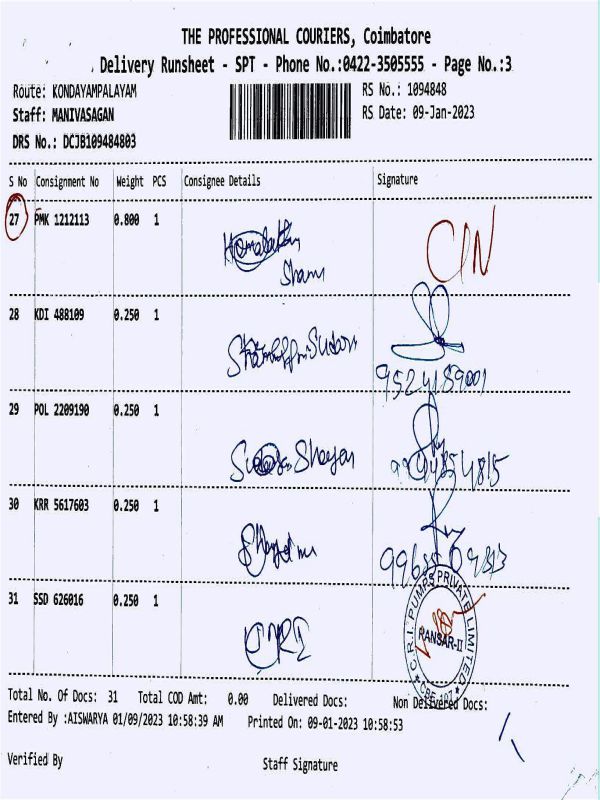 THE PROFESSIONAL COURIERS, Coimbatore
Delivery Runsheet - SPT - Phone No.:0422-3505555 - Page No.:3
Route: KONDAYAMPALAYAM RS No.: 1094848
Staff: MANIVASAGAN RS Date: 09-Jan-2023
DRS No.: DCJB109484803
S No Consignment No Weight PCS Consignee Details Signature
27 PMK 1212113 0.800 1
28 KDI 488109 0.250 1
9524189001
29 POL 2209190 0.250 1
30 KRR 5617603 0.250 1
31 SSD 626016 0.250 1 CRI
C.R.I. PUMPS PRIVATE LIMITED
RANSAR-II
Total No. Of Docs: 31 Total COD Amt: 0.00 Delivered Docs: Non Delivered Docs:
Entered By :AISWARYA 01/09/2023 10:58:39 AM Printed On: 09-01-2023 10:58:53
Verified By Staff Signature